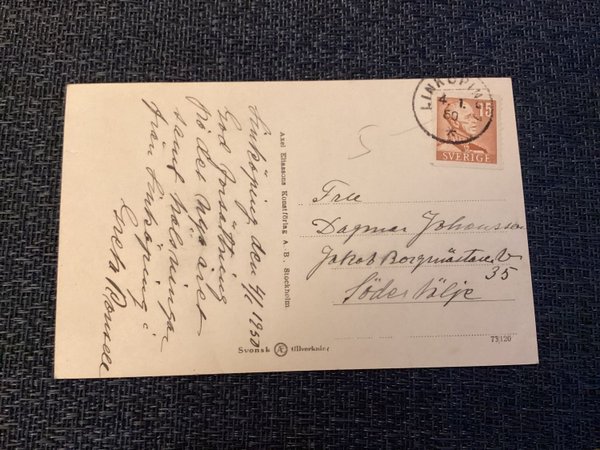 Linköping den 4/1 1950
God fortsättning
på det nya året
samt hälsningar
från Linköping i
Greta
Axel Eliassons Konstförlag A. B. Stockholm
LINKÖPING
4. 1.
50
15
SVERIGE
Fru
Dagmar Johansson
Jakob Borgmästare V
35
Södertälje
Svensk Æ tillverkning